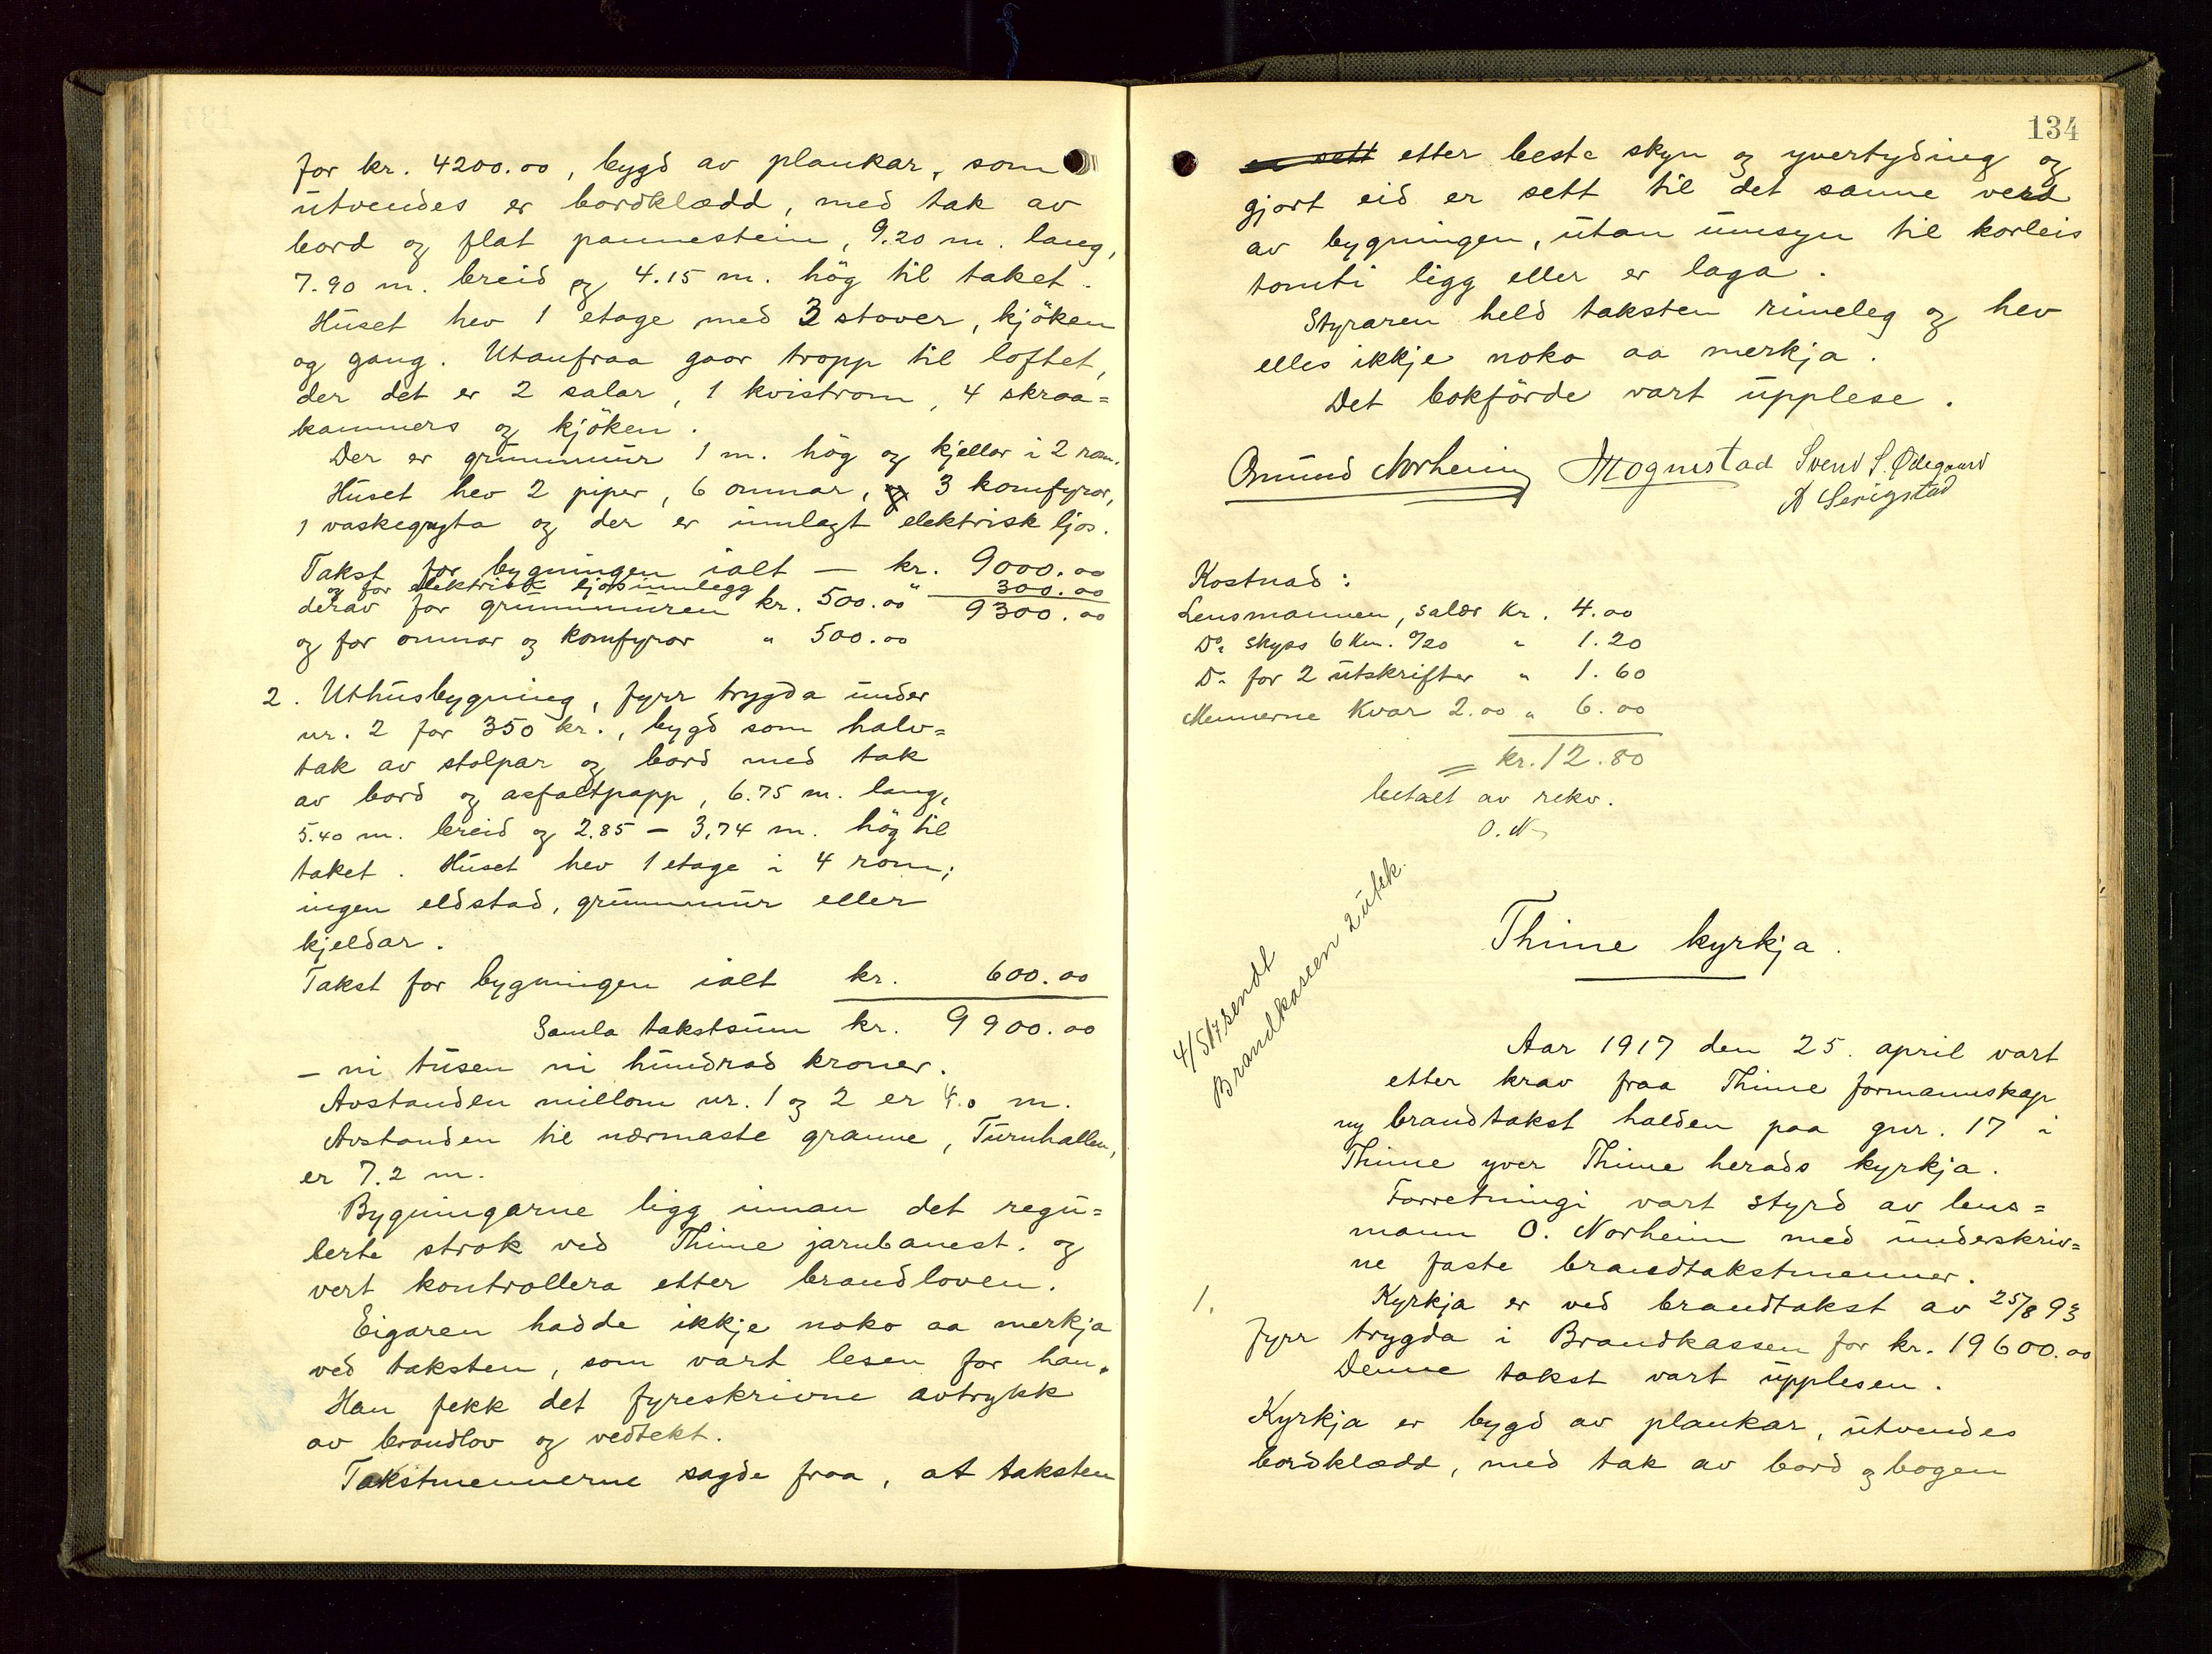 for kr. 4200.00, bygd av plankar, som
utvendes er bordklædd, med tak av
bord og flat pannestein, 9.20 m. lang,
7.90 m. breid og 4.15 m. hög til taket.
Huset hev 1 etage med 3 stover, kjöken
og gang. Utanfraa gaar tropp til loftet,
der det er 2 salar, 1 kvistrom, 4 skraa=
kammers og kjöken.
Der er grunnmur 1 m. hög og kjellar i 2 rom.
Huset hev 2 piper, 6 omnar, og 3 komfyrar,
1 vaskegryta og der er innlagt elektrisk ljos.
Takst for bygningen ialt — kr. 9000.00
og for elektrisk ljosinnlegg " 300.00
derav for grunnmuren kr. 500.00 9300.00
og for omnar og komfyrar " 500.00
2. Uthusbygning, fyrr trygda under
nr. 2 for 350 kr., bygd som halv=
tak av stolpar og bord med tak
av bord og asfaltpapp, 6.75 m. lang,
5.40 m. breid og 2.85 – 3,74 m. hög til
taket. Huset hev 1 etage i 4 rom;
ingen eldstad, grunnmur eller
kjeldar.
Takst for bygningen ialt kr. 600.00
Samla takstsum kr. 9900.00
– ni tusen ni hundrad kroner.
Avstanden millom nr. 1 og 2 er 4.0 m.
Avstanden til nærmaste granne, Turnhallen,
er 7.2 m.
Bygningarne ligg innan det regu=
lerte strok ved Thime jarnbanest. og
vert kontrollera etter brandloven.
Eigaren hadde ikkje noko aa merkja
ved taksten, som vart lesen for han.
Han fekk det fyreskrivne avtrykk
av brandlov og vedtekt.
Takstmennerne sagde fraa, at taksten
134
er sett etter beste skyn og yvertyding og
gjort eid er sett til det sanne verd
av bygningen, utan umsyn til korleis
tomti ligg eller er laga.
Styraren held taksten rimeleg og hev
elles ikkje noko aa merkja.
Det bokförde vart upplese.
Omund Norheim Mognestad Svend S. Ødegaard
A Serigstad
Kostnad:
Lensmannen, salær kr. 4.00
Do. skyss 6 km. a/20 " 1.20
Do. for 2 utskrifter " 1.60
Mennerne kvar 2.00 " 6.00
= kr. 12.80
betalt av rekv.
O. N.
4/5 17 sendt
Brandkassen 2 utsk.
Thime kyrkja.
Aar 1917 den 25. april vart
etter krav fraa Thime formannskap
ny brandtakst halden paa gnr. 17 i
Thime yver Thime herads kyrkja.
Forretningi vart styrd av lens=
mann O. Norheim med underskriv=
ne faste brandtakstmenner.
1. Kyrkja er ved brandtakst av 25/8 93
fyrr trygda i Brandkassen for kr. 19600.00
Denne takst vart upplesen.
Kyrkja er bygd av plankar, utvendes
bordklædd, med tak av bord og bogen